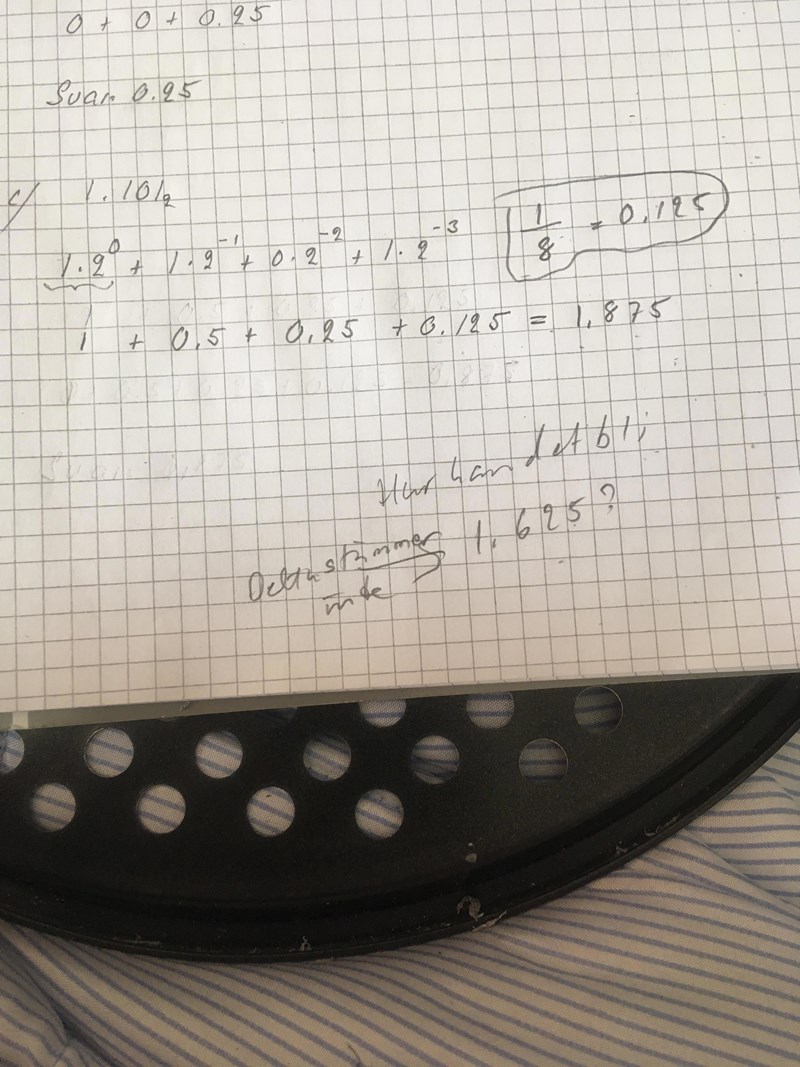 0 + 0 + 0.25
Svar. 0.25
c/ 1.101₂
1·2⁰ + 1·2⁻¹ + 0·2⁻² + 1·2⁻³
1/8 = 0.125
1 + 0,5 + 0,25 + 0.125 = 1.875
Hur kan det bli
1.625?
Detta stämmer
inte